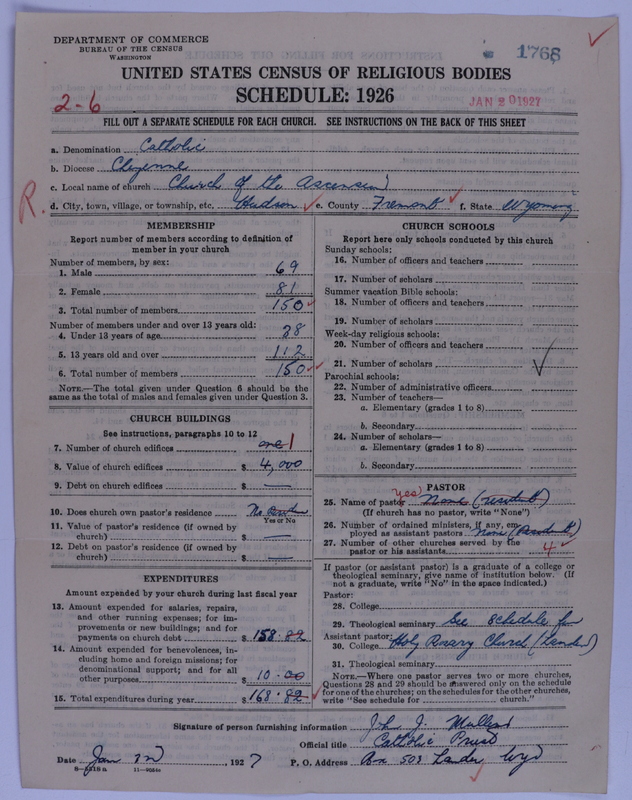 DEPARTMENT OF COMMERCE
BUREAU OF THE CENSUS
WASHINGTON
1768
UNITED STATES CENSUS OF RELIGIOUS BODIES
SCHEDULE: 1926
2-6
JAN 20 1927
FILL OUT A SEPARATE SCHEDULE FOR EACH CHURCH. SEE INSTRUCTIONS ON THE BACK OF THIS SHEET
a. Denomination Catholic
b. Diocese Cheyenne
c. Local name of church Church of the Ascension
R.
d. City, town, village, or township, etc. Hudson e. County Fremont f. State Wyoming
MEMBERSHIP
Report number of members according to definition of
member in your church
Number of members, by sex:
1. Male 69
2. Female 81
3. Total number of members 150
Number of members under and over 13 years old:
4. Under 13 years of age 38
5. 13 years old and over 112
6. Total number of members 150
NOTE.—The total given under Question 6 should be the
same as the total of males and females given under Question 3.
CHURCH BUILDINGS
See instructions, paragraphs 10 to 12
7. Number of church edifices one 1
8. Value of church edifices $ 4,000
9. Debt on church edifices $ —
10. Does church own pastor's residence No
Yes or No
11. Value of pastor's residence (if owned by
church) $ —
12. Debt on pastor's residence (if owned by
church) $ —
EXPENDITURES
Amount expended by your church during last fiscal year
13. Amount expended for salaries, repairs,
and other running expenses; for im-
provements or new buildings; and for
payments on church debt $ 158.82
14. Amount expended for benevolences, in-
cluding home and foreign missions; for
denominational support; and for all
other purposes $ 10.00
15. Total expenditures during year $ 168.82
CHURCH SCHOOLS
Report here only schools conducted by this church
Sunday schools:
16. Number of officers and teachers
17. Number of scholars
Summer vacation Bible schools:
18. Number of officers and teachers
19. Number of scholars
Week-day religious schools:
20. Number of officers and teachers
21. Number of scholars
Parochial schools:
22. Number of administrative officers
23. Number of teachers—
a. Elementary (grades 1 to 8)
b. Secondary
24. Number of scholars—
a. Elementary (grades 1 to 8)
b. Secondary
PASTOR
25. Name of pastor yes None (resident)
(If church has no pastor, write "None")
26. Number of ordained ministers, if any, em-
ployed as assistant pastors None (resident)
27. Number of other churches served by the
pastor or his assistants 4
If pastor (or assistant pastor) is a graduate of a college or
theological seminary, give name of institution below. (If
not a graduate, write "No" in the space indicated.)
Pastor:
28. College
29. Theological seminary See Schedule for
Assistant pastor:
30. College Holy Rosary Church (Lander)
31. Theological seminary
NOTE.—Where one pastor serves two or more churches,
Questions 28 and 29 should be answered only on the schedule
for one of the churches; on the schedules for the other churches,
write "See schedule for church."
Signature of person furnishing information John J.
Official title Catholic Priest
Date Jan 2nd, 1927 P. O. Address Box 503 Lander Wyo
8-5318a 11-9084